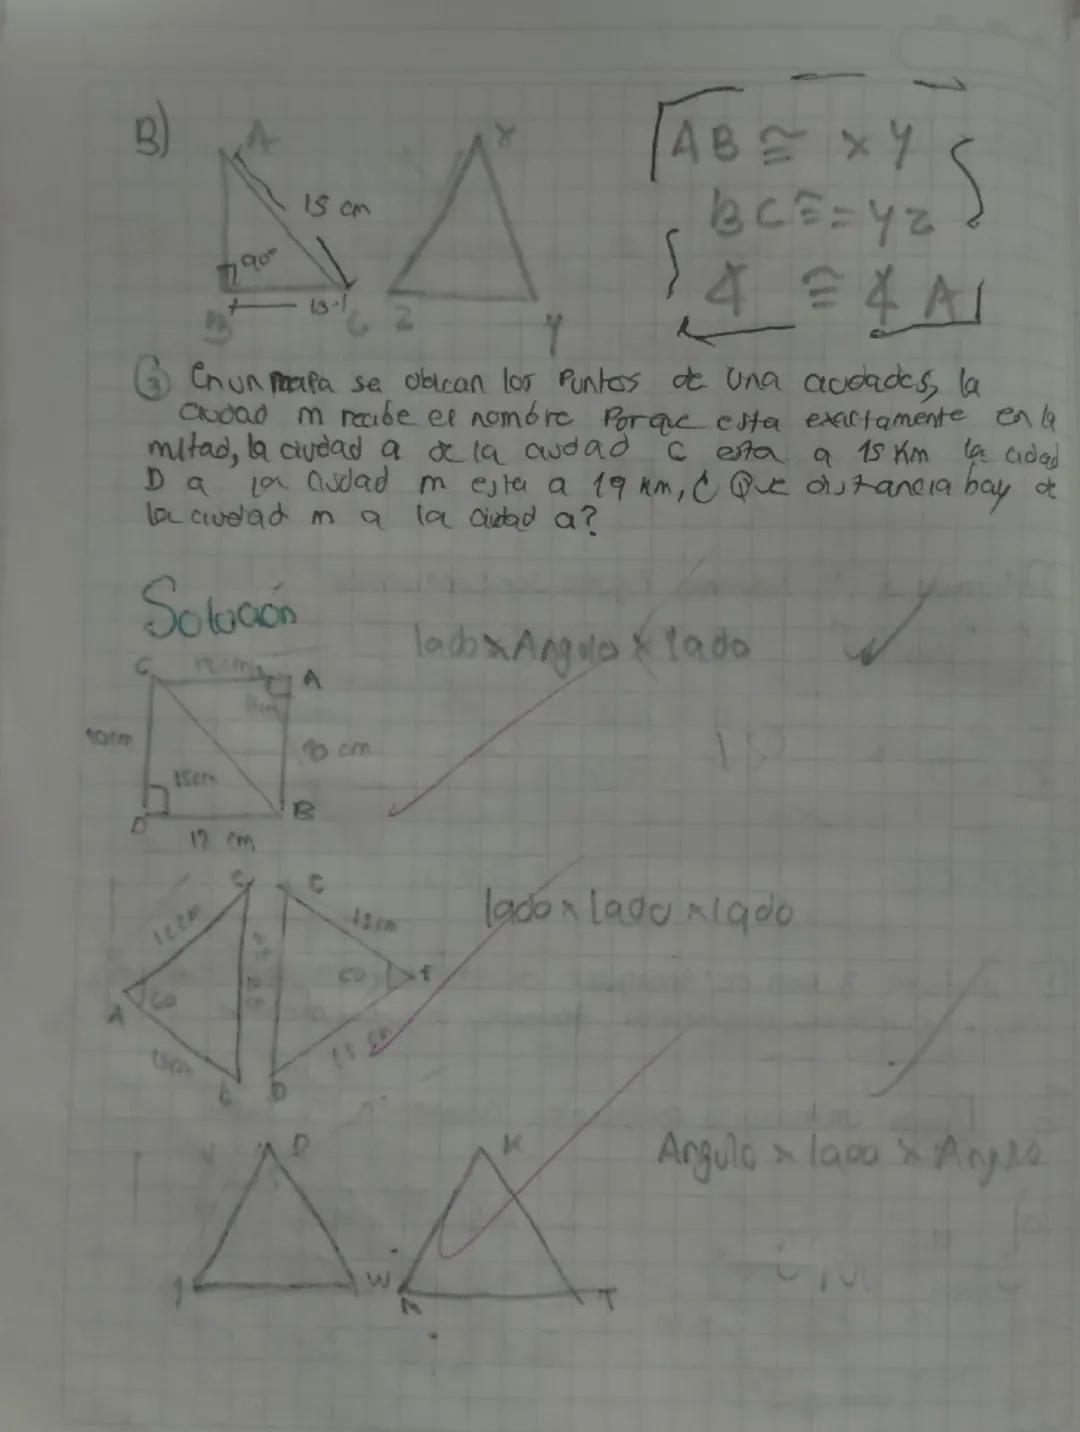 B)
A
15 cm
90°
B
C
Z
Y
AB ≅ XY
BC ≅ = YZ
∡ ≅ ∡ A
③ En un mapa se ubican los Puntos de una ciudades, la
ciudad m recibe el nombre Porque esta exactamente en la
mitad, la ciudad a de la ciudad C esta a 15 Km la ciudad
D a la ciudad m esta a 19 Km, ¿ Que distancia hay de
la ciudad m a la ciudad a?
Solución
lado x Angulo x lado
C
12 cm
A
10 cm
10 cm
15 cm
D
B
12 cm
lado x lado x lado
C
12 cm
12 cm
A
60
60
15 cm
15 cm
D
Angulo x lado x Angulo
K
W
T